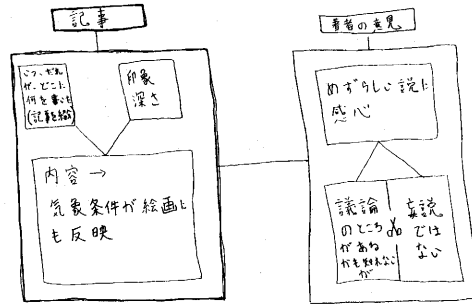 記事
いつ、だれ
が、どこに
何を書いた
(記事を紹)
印象
深さ
内容→
気象条件が絵画に
も反映
著者の意見
めずらしい説に
感心
議論
のところ
があるかも知れないが
妄説
では
ない